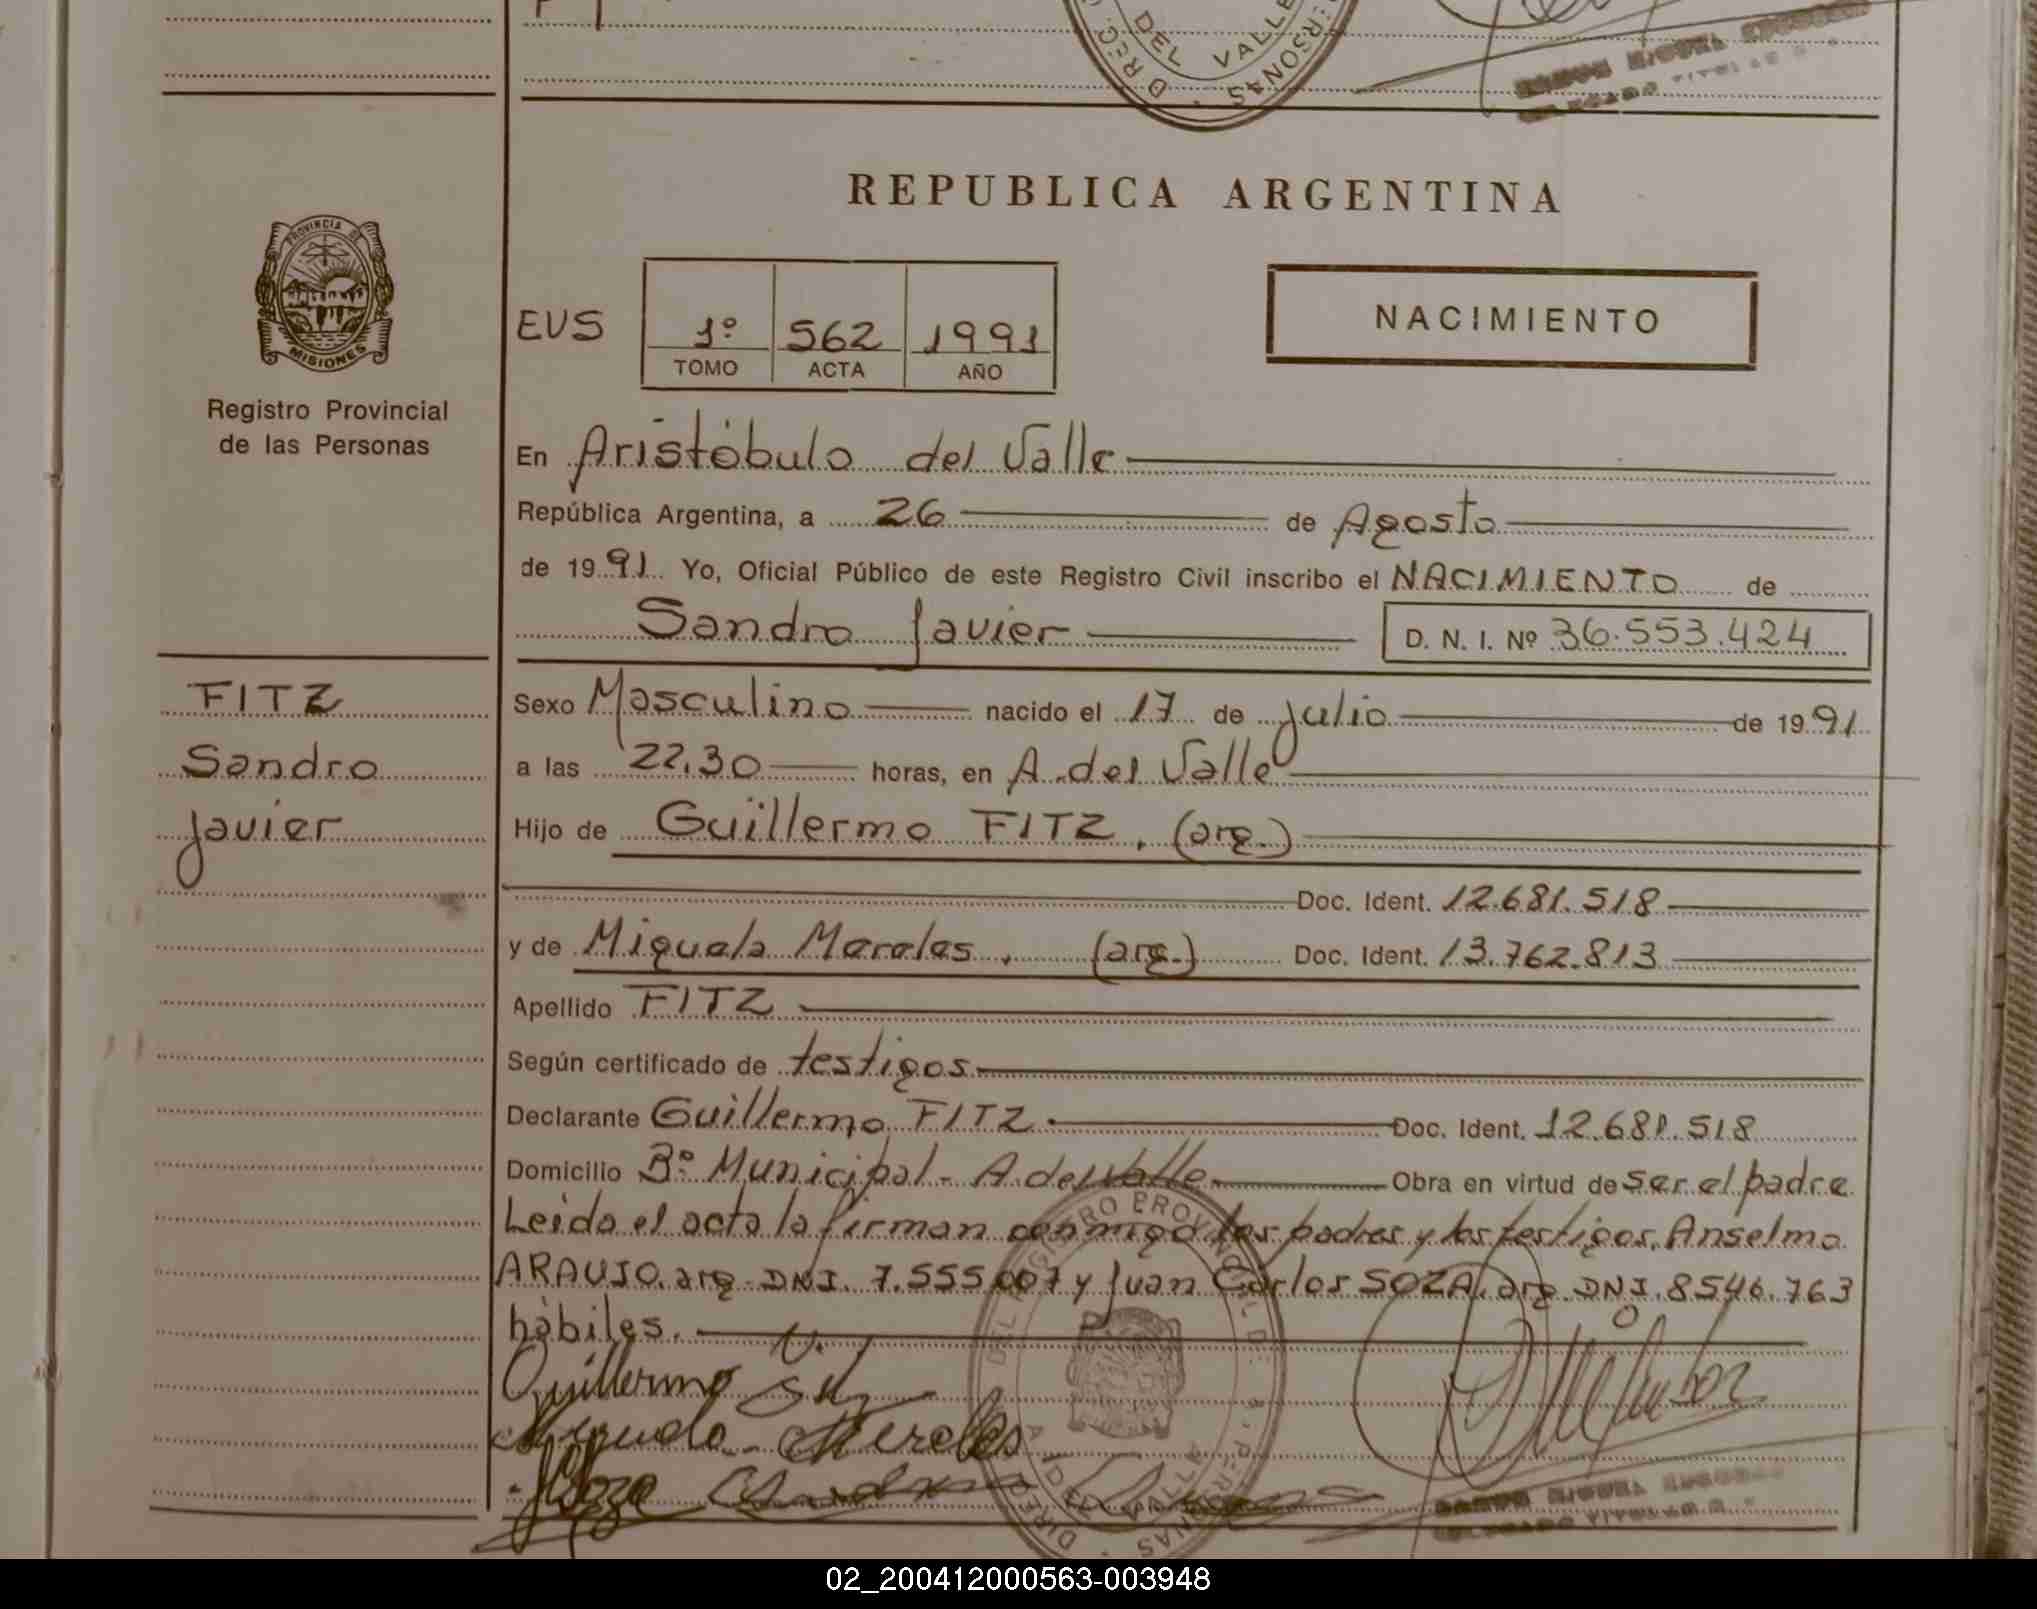 DEL VALLE
REPUBLICA ARGENTINA
PROVINCIA DE
MISIONES
Registro Provincial
de las Personas
EUS
1º 562 1991
TOMO ACTA AÑO
NACIMIENTO
En Aristóbulo del Valle
República Argentina, a 26 de Agosto
de 1991 Yo, Oficial Público de este Registro Civil inscribo el NACIMIENTO de
Sandro Javier D. N. I. Nº 36.553.424
FITZ
Sandro
Javier
Sexo Masculino nacido el 17 de julio de 1991
a las 22.30 horas, en A. del Valle
Hijo de Guillermo FITZ, (arg.)
Doc. Ident. 12.681.518
y de Miguela Mereles, (arg.) Doc. Ident. 13.762.813
Apellido FITZ
Según certificado de testigos
Declarante Guillermo FITZ Doc. Ident. 12.681.518
Domicilio Bº Municipal - A. del Valle Obra en virtud de ser el padre
Leida el acta la firman conmigo los padres y los testigos, Anselmo
ARAUJO, arg. DNI. 7.555.007 y Juan Carlos SOZA, arg. DNI. 8546.763
hábiles.
Guillermo
Miguela Mereles
02_200412000563-003948